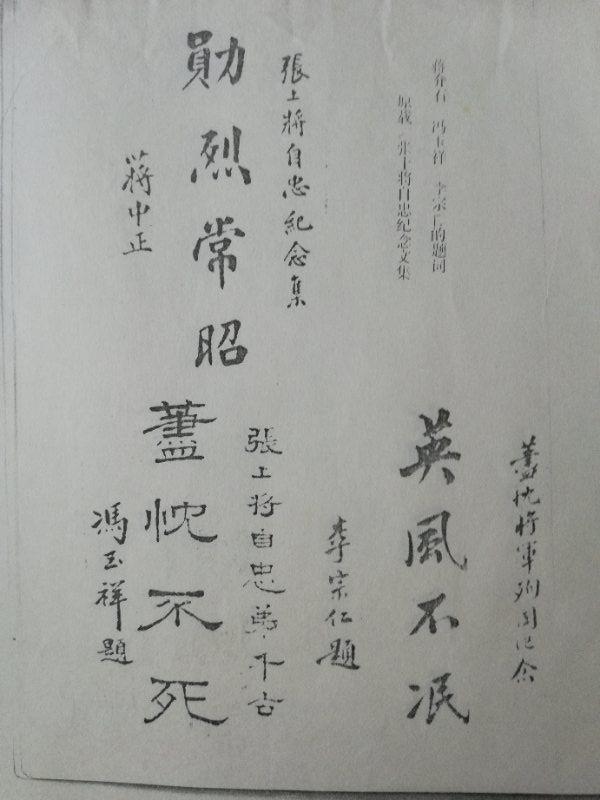 蒋介石 冯玉祥 李宗仁的题词
原载《张上将自忠纪念文集
張上將自忠紀念集
勛烈常昭
蔣中正
藎忱將軍殉国纪念
英風不泯
李宗仁題
張上將自忠弟千古
藎忱不死
馮玉祥題